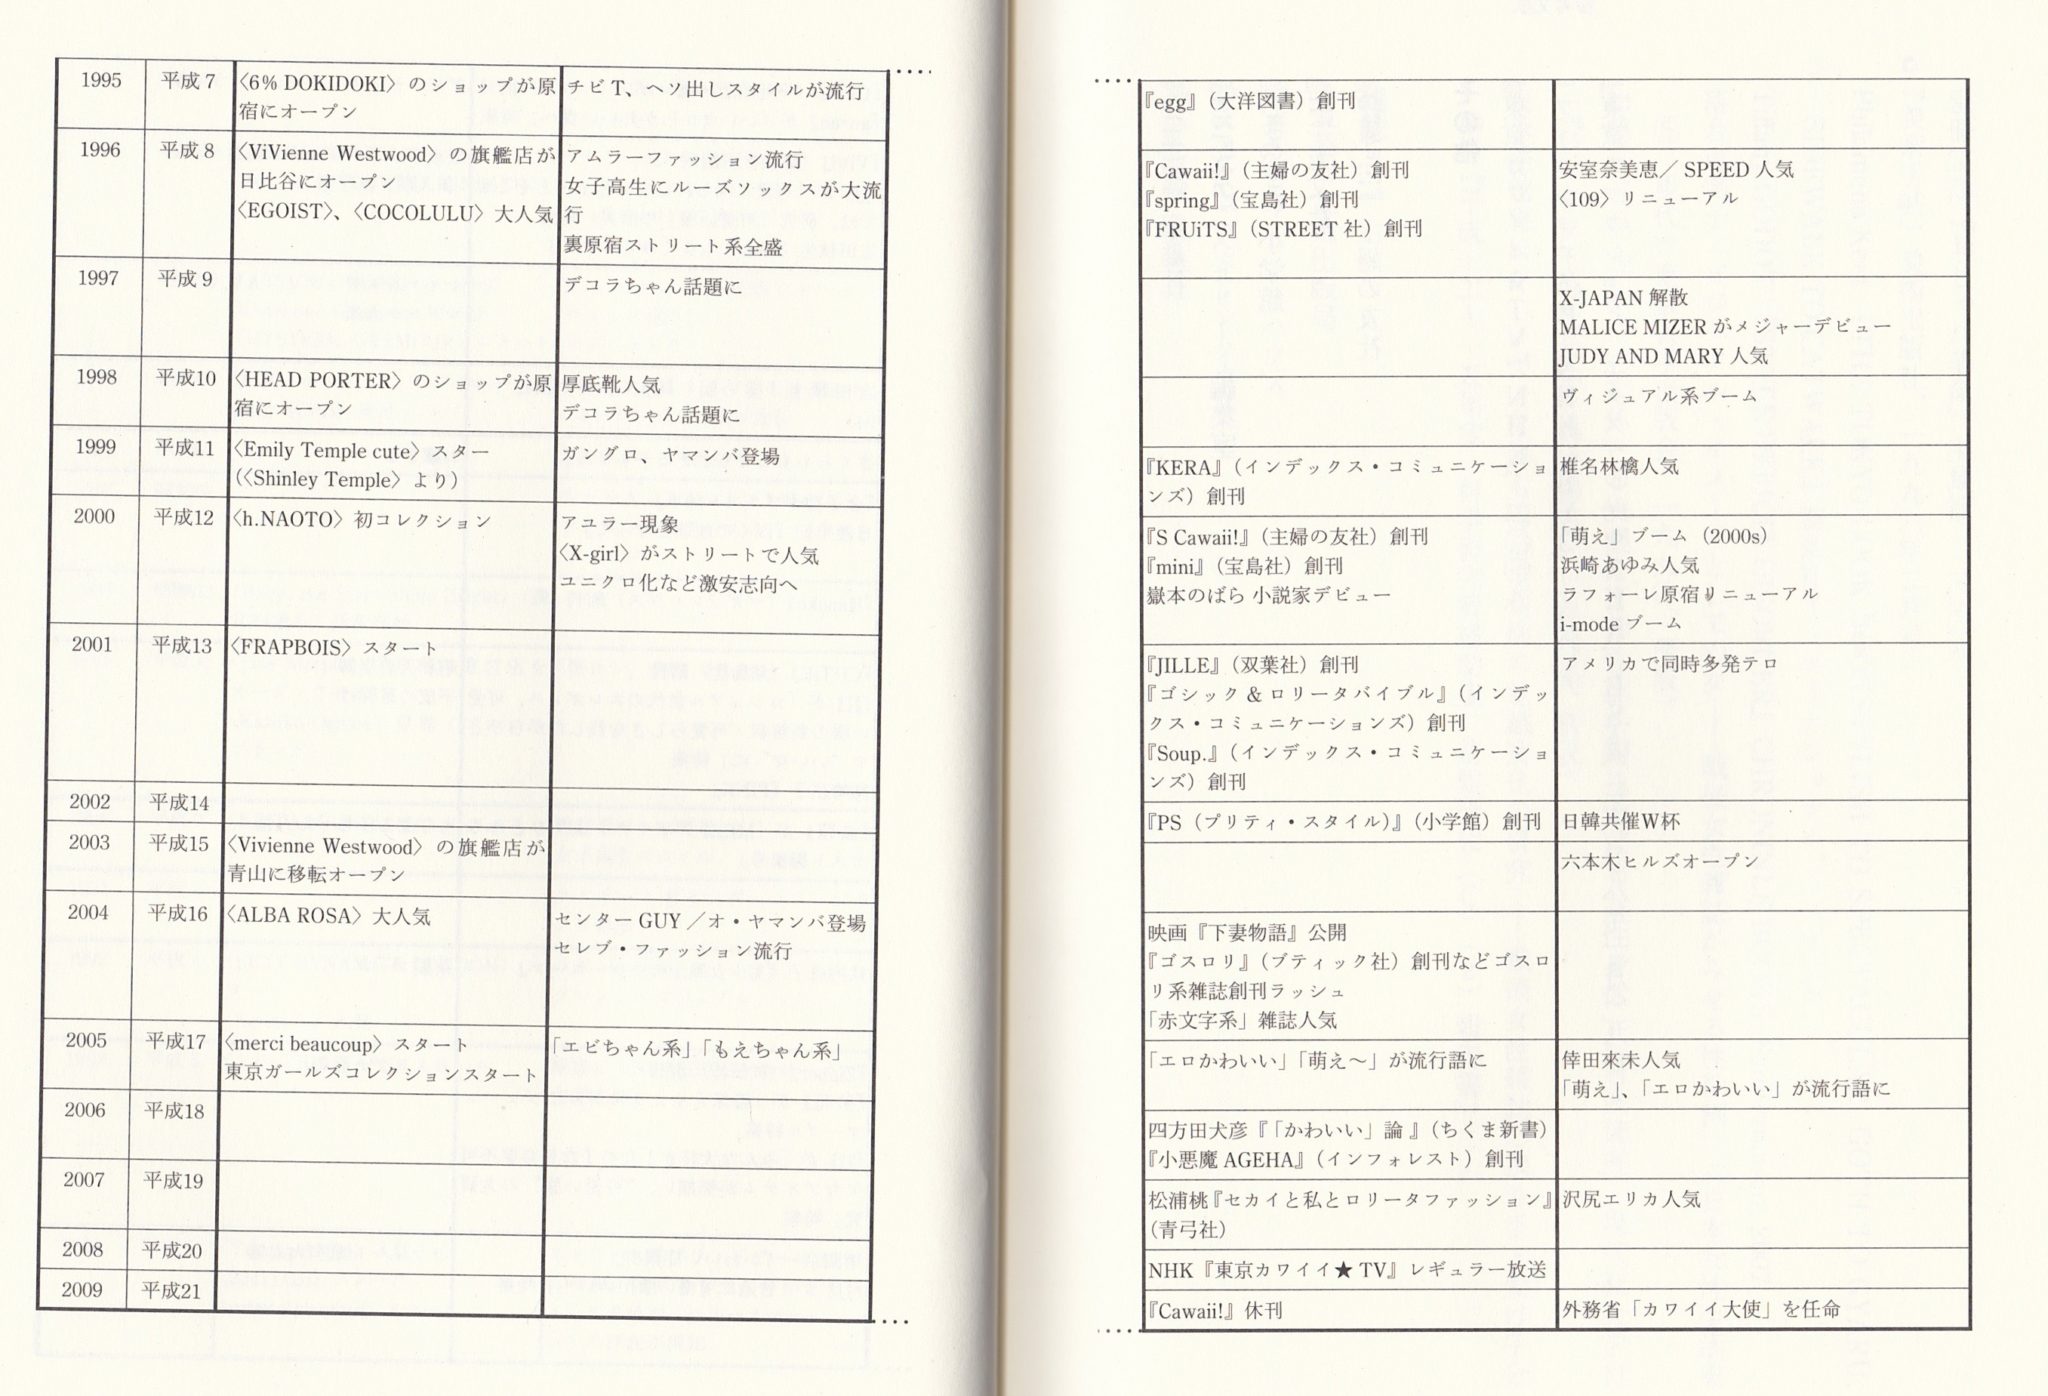 1995
平成7
〈6% DOKIDOKI〉のショップが原
宿にオープン
チビT、ヘソ出しスタイルが流行
1996
平成8
〈ViVienne Westwood〉の旗艦店が
日比谷にオープン
〈EGOIST〉、〈COCOLULU〉大人気
アムラーファッション流行
女子高生にルーズソックスが大流
行
裏原宿ストリート系全盛
1997
平成9
デコラちゃん話題に
1998
平成10
〈HEAD PORTER〉のショップが原
宿にオープン
厚底靴人気
デコラちゃん話題に
1999
平成11
〈Emily Temple cute〉スター
(〈Shinley Temple〉より)
ガングロ、ヤマンバ登場
2000
平成12
〈h.NAOTO〉初コレクション
アユラー現象
〈X-girl〉がストリートで人気
ユニクロ化など激安志向へ
2001
平成13
〈FRAPBOIS〉スタート
2002
平成14
2003
平成15
〈Vivienne Westwood〉の旗艦店が
青山に移転オープン
2004
平成16
〈ALBA ROSA〉大人気
センターGUY／オ・ヤマンバ登場
セレブ・ファッション流行
2005
平成17
〈merci beaucoup〉スタート
東京ガールズコレクションスタート
「エビちゃん系」「もえちゃん系」
2006
平成18
2007
平成19
2008
平成20
2009
平成21
『egg』（大洋図書）創刊
『Cawaii!』（主婦の友社）創刊
『spring』（宝島社）創刊
『FRUiTS』（STREET社）創刊
安室奈美恵／SPEED人気
〈109〉リニューアル
X-JAPAN解散
MALICE MIZERがメジャーデビュー
JUDY AND MARY人気
ヴィジュアル系ブーム
『KERA』（インデックス・コミュニケーショ
ンズ）創刊
椎名林檎人気
『S Cawaii!』（主婦の友社）創刊
『mini』（宝島社）創刊
嶽本のばら 小説家デビュー
「萌え」ブーム（2000s）
浜崎あゆみ人気
ラフォーレ原宿リニューアル
i-modeブーム
『JILLE』（双葉社）創刊
『ゴシック&ロリータバイブル』（インデッ
クス・コミュニケーションズ）創刊
『Soup.』（インデックス・コミュニケーショ
ンズ）創刊
アメリカで同時多発テロ
『PS（プリティ・スタイル）』（小学館）創刊
日韓共催W杯
六本木ヒルズオープン
映画『下妻物語』公開
『ゴスロリ』（ブティック社）創刊などゴスロ
リ系雑誌創刊ラッシュ
「赤文字系」雑誌人気
「エロかわいい」「萌え〜」が流行語に
倖田來未人気
「萌え」、「エロかわいい」が流行語に
四方田犬彦『「かわいい」論 』（ちくま新書）
『小悪魔AGEHA』（インフォレスト）創刊
松浦桃『セカイと私とロリータファッション』
（青弓社）
沢尻エリカ人気
NHK『東京カワイイ★TV』レギュラー放送
『Cawaii!』休刊
外務省「カワイイ大使」を任命